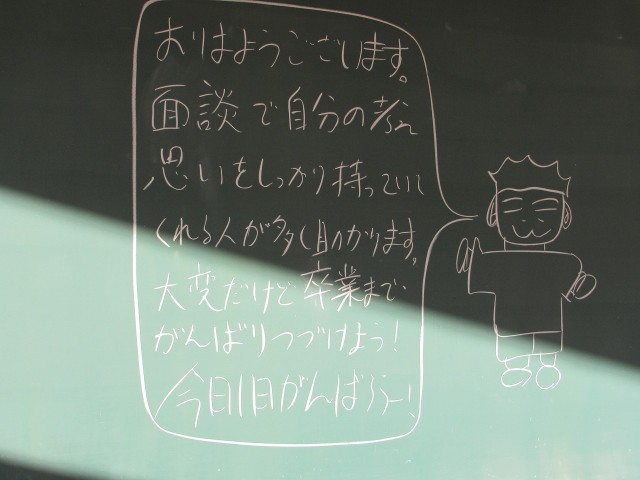 おはようございます。
面談で自分の考え
思いをしっかり持っていて
くれる人が多く助かります。
大変だけど卒業まで
がんばりつづけよう!
今日1日がんばろうー!